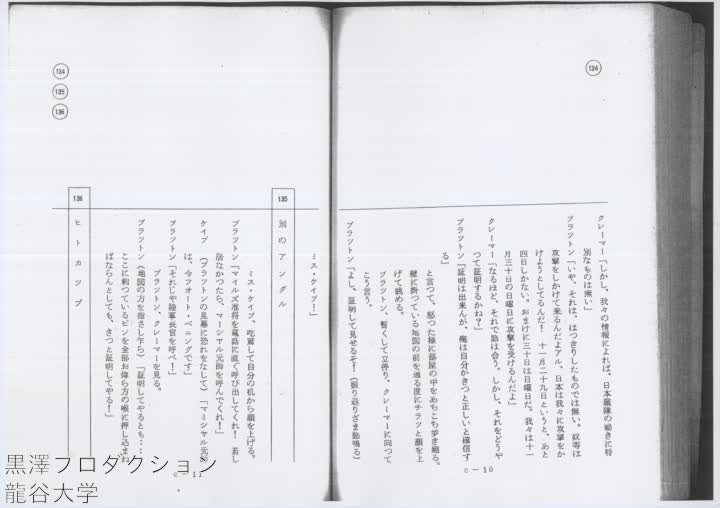 134
クレーマー「しかし、我々の情報によれば、日本艦隊の動きに特
別なものは無い」
ブラツトン「いや、それは、はつきりしたものでは無い。奴等は
攻撃をしかけて来るんだよアル、日本は我々に攻撃をか
けようとしてるんだ! 十一月二十九日というと、あと
四日しかない。おまけに三十日は日曜日だ。我々は十一
月三十日の日曜日に攻撃を受けるんだよ」
クレーマー「なるほど、それで話は合う。しかし、それをどうや
つて証明するかね?」
ブラツトン「証明は出来んが、俺は自分がきつと正しいと確信す
る」
と言つて、怒つた様に部屋の中をあちこち歩き廻る。
壁に掛つている地図の前を通る度にチラツと顔を上
げて眺める。
ブラツトン、暫くして立停り、クレーマーに向つて
こう言う。
ブラツトン「よし、証明して見せるぞ!(振り返りざま怒鳴る)
c－10
134
135
136
ミス・ケイブ!」
135
別のアングル
ミス・ケイブ、吃驚して自分の机から顔を上げる。
ブラツトン「マイルズ准将を電話に直ぐ呼び出してくれ! 若し
居なかつたら、マーシャル元帥を呼んでくれ!」
ケイブ (ブラツトンの見幕に恐れをなして)「マーシャル元帥
は、今フオート・ベニングです」
ブラツトン「それじや陸軍長官を呼べ!」
ブラツトン、クレーマーを見る。
ブラツトン(地図の方を指さし乍ら)「証明してやるとも……
ここに刺つているピンを全部お偉ら方の喉に押し込まね
ばならんとしても、きつと証明してやる!」
136
ヒトカツプ
c－11
黒澤プロダクション
龍谷大学